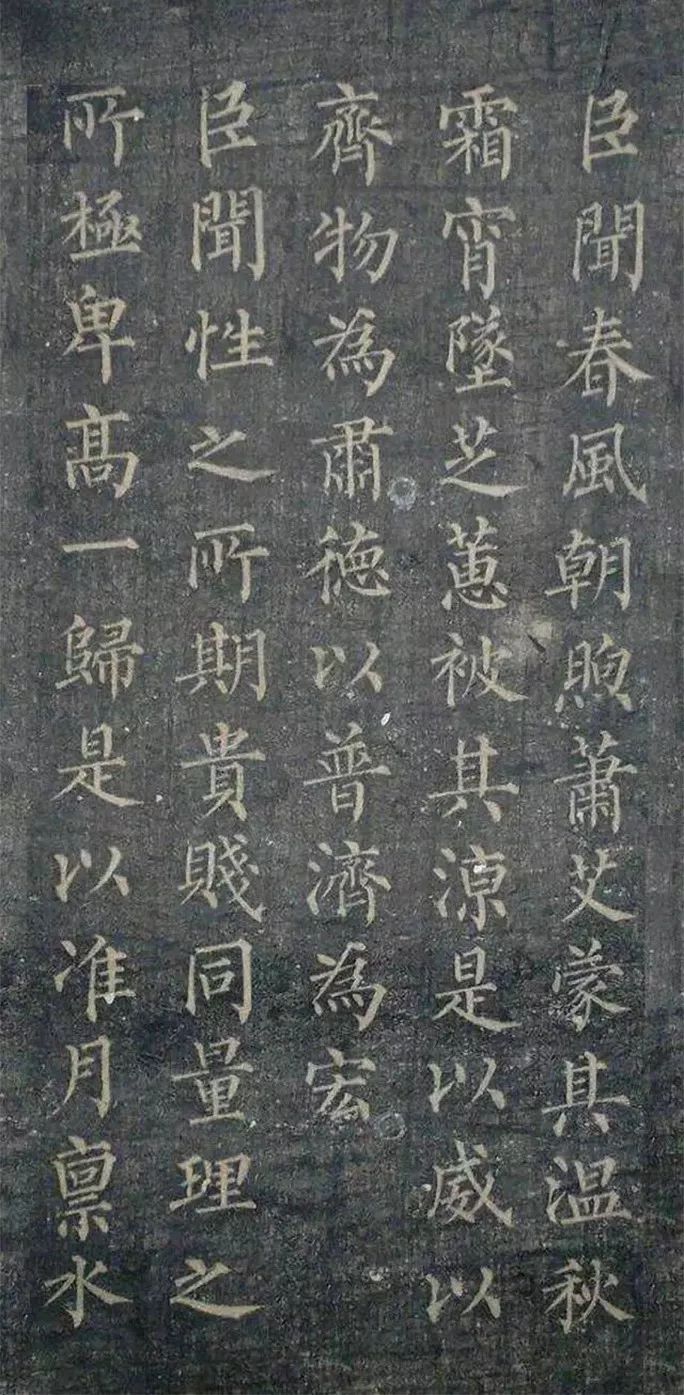 臣聞春風朝煦蕭艾蒙其温秋
霜宵墜芝蕙被其涼是以威以
齊物為肅德以普濟為宏
臣聞性之所期貴賤同量理之
所極卑髙一歸是以准月禀水